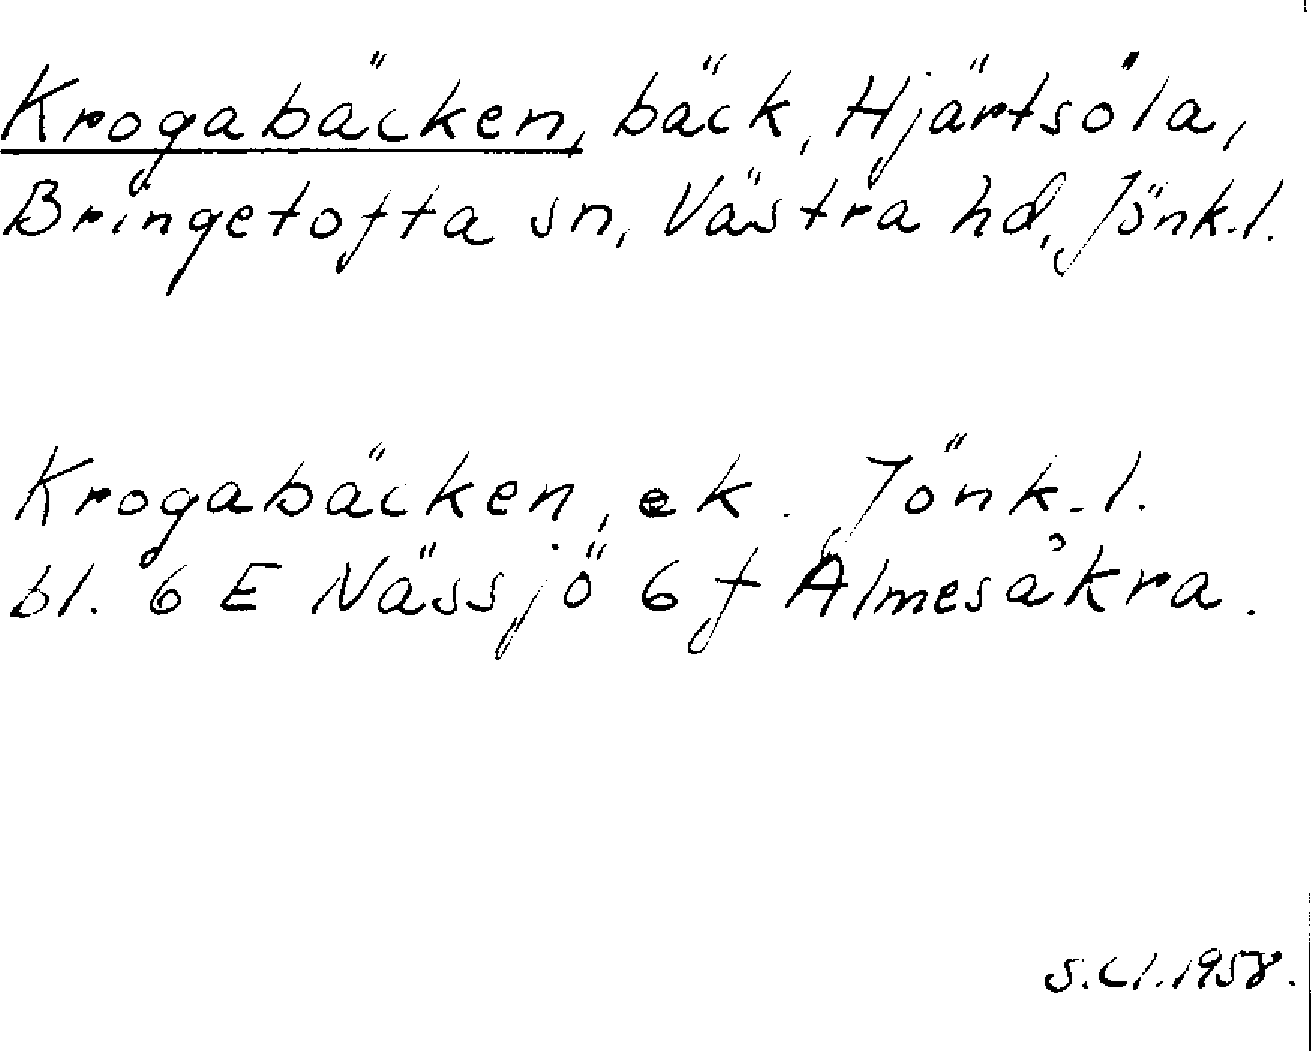 Krogabäcken, bäck, Hjärtsöla,
Bringetofta sn, Västra hd, Jönk.l.
Krogabäcken, ek. Jönk.l.
bl. 6 E Nässjö 6 f Almesåkra.
S.Cl.1958.